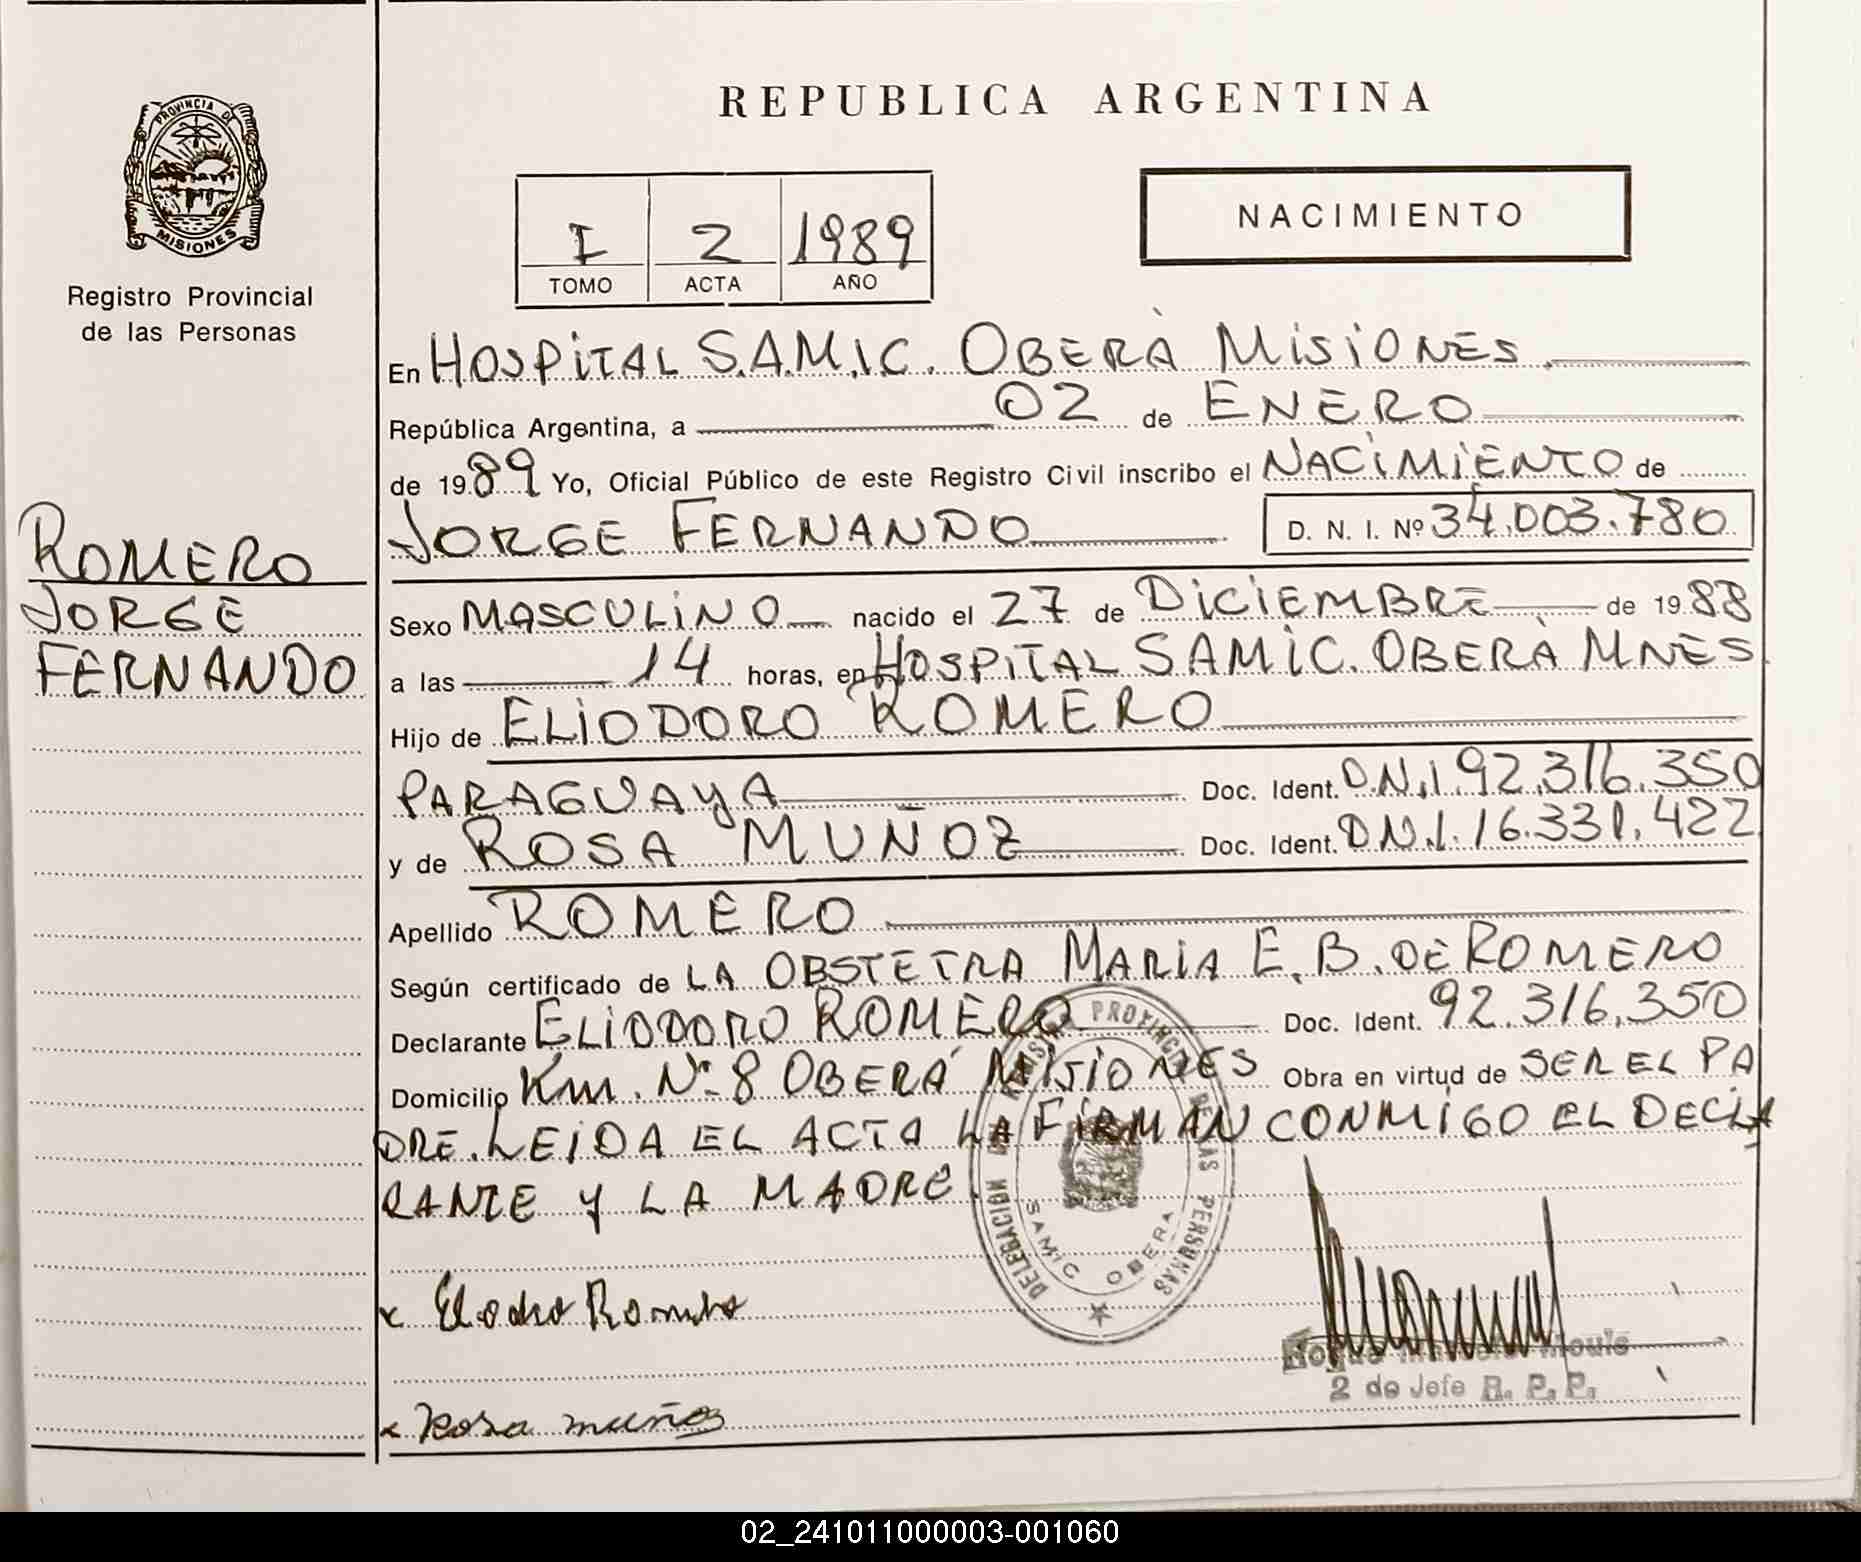 REPUBLICA ARGENTINA
PROVINCIA DE
MISIONES
Registro Provincial
de las Personas
I 2 1989
TOMO ACTA AÑO
NACIMIENTO
En HOSPITAL S.A.M.I.C. OBERÀ MISIONES.
República Argentina, a 02 de ENERO
de 1989 Yo, Oficial Público de este Registro Civil inscribo el NACIMIENTO de
JORGE FERNANDO D. N. I. Nº 34.003.780
ROMERO
JORGE
FERNANDO
Sexo MASCULINO nacido el 27 de DICIEMBRE de 1988
a las 14 horas, en HOSPITAL SAMIC. OBERÀ MNES.
Hijo de ELIODORO ROMERO
PARAGUAYA Doc. Ident. D.N.I. 92.316.350
y de ROSA MUÑOZ Doc. Ident. D.N.I. 16.331.422
Apellido ROMERO
Según certificado de LA OBSTETRA MARIA E. B. DE ROMERO
Declarante ELIODORO ROMERO Doc. Ident. 92.316.350
Domicilio Km. Nº 8 OBERÁ MISIONES Obra en virtud de SER EL PA
DRE. LEIDA EL ACTA LA FIRMAN CONMIGO EL DECLA
RANTE Y LA MADRE.
DELEGACION DEL REGISTRO PROVINCIAL DE LAS PERSONAS
SAMIC OBERA
x Elodro Romero
2 do Jefe R. P. P.
x Rosa muños
02_241011000003-001060